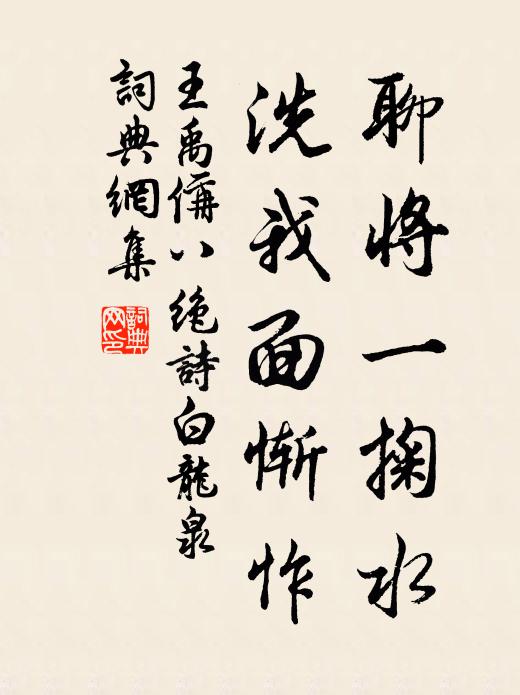 聊將一掬水
洗我面慚怍
王禹偁八絶詩白龍泉
詞典網集
詞典网印